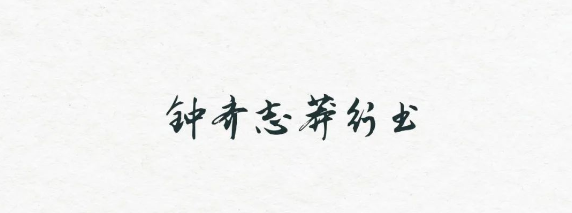 钟齐志莽行书